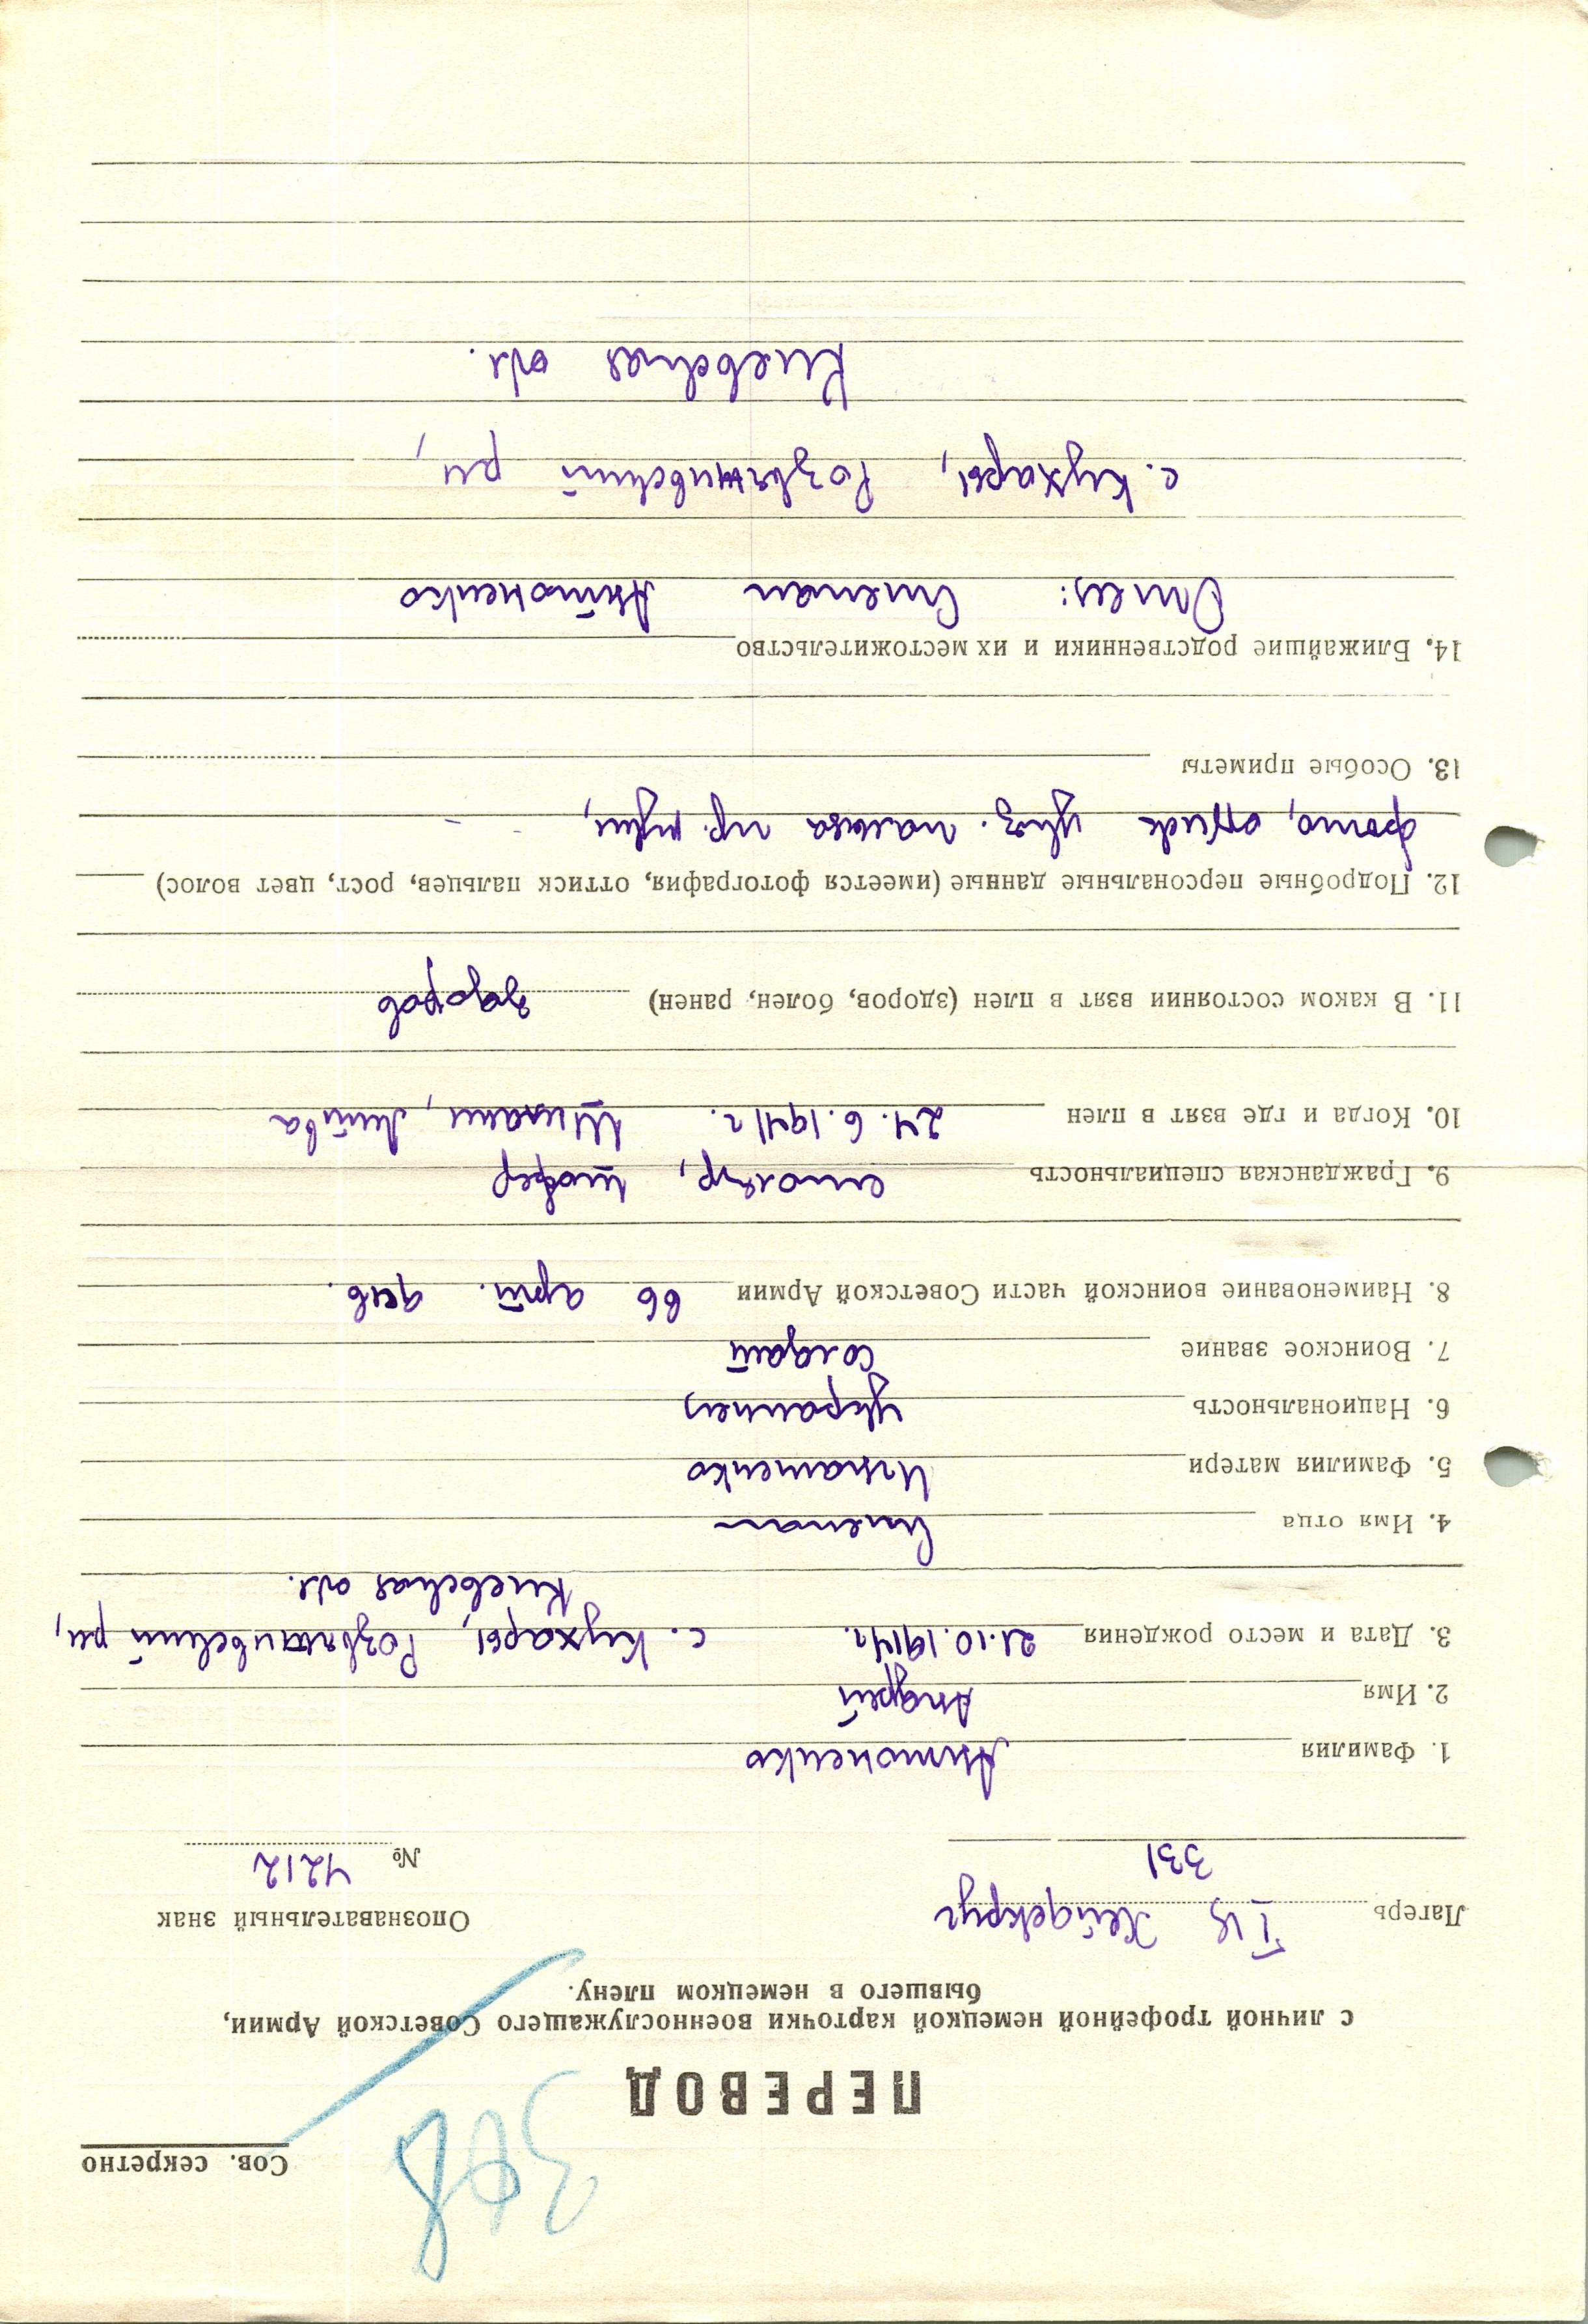 Сов. секретно
ПЕРЕВОД
с личной трофейной немецкой карточки военнослужащего Советской Армии,
бывшего в немецком плену.
Лагерь Хейдекруг
331
Опознавательный знак
№ 4212
1. Фамилия Антоненко
2. Имя Андрей
3. Дата и место рождения 21.10.1914г. с. Кухары, Розваживский рн,
Киевская обл.
4. Имя отца Степан
5. Фамилия матери Игнатенко
6. Национальность украинец
7. Воинское звание солдат
8. Наименование воинской части Советской Армии 66 арт. див.
9. Гражданская специальность столяр, шофер
10. Когда и где взят в плен 24.6.1941г. Литва
11. В каком состоянии взят в плен (здоров, болен, ранен) здоров
12. Подробные персональные данные (имеется фотография, оттиск пальцев, рост, цвет волос)
фото, указ. пальца пр. руки,
13. Особые приметы
14. Ближайшие родственники и их местожительство
Отец: Степан Антоненко
с. Кухары, Розваживский рн,
Киевская обл.